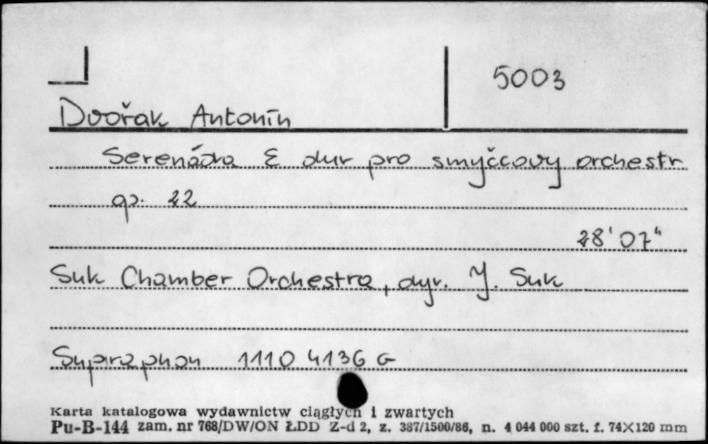 5003
Dvořak Antonín
Serenáda E dur pro smyčcovy orchestr
op. 22
28'07"
Suk Chamber Orchestra, dyr. J. Suk
Supraphon 1110 4136 G
Karta katalogowa wydawnictw ciągłych i zwartych
Pu-B-144 zam. nr 768/DW/ON ŁDD Z-d 2, z. 387/1500/86, n. 4 044 000 szt. f. 74×120 mm